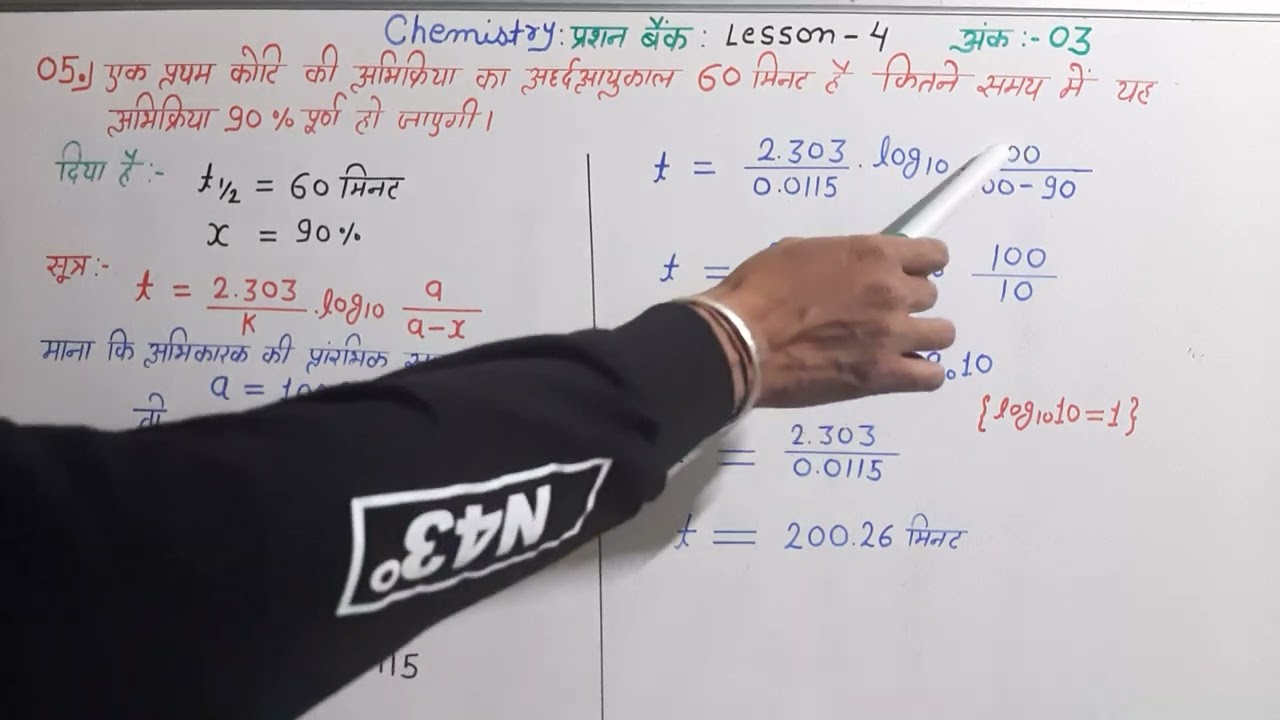 Chemistry: प्रशन बैंक: Lesson-4 अंक:-03
05. एक प्रथम कोटि की अभिक्रिया का अर्ध्दआयुकाल 60 मिनट है कितने समय में यह
अभिक्रिया 90% पूर्ण हो जाएगी।
दिया है:- t1/2 = 60 मिनट
x = 90%
सूत्र:- t = 2.303/K . log10 a/a-x
माना कि अभिकारक की प्रांरभिक
a = 10
तो
115
t = 2.303/0.0115 . log10 00/00-90
t = 100/10
10
{log10 10=1}
= 2.303/0.0115
t = 200.26 मिनट
N43°